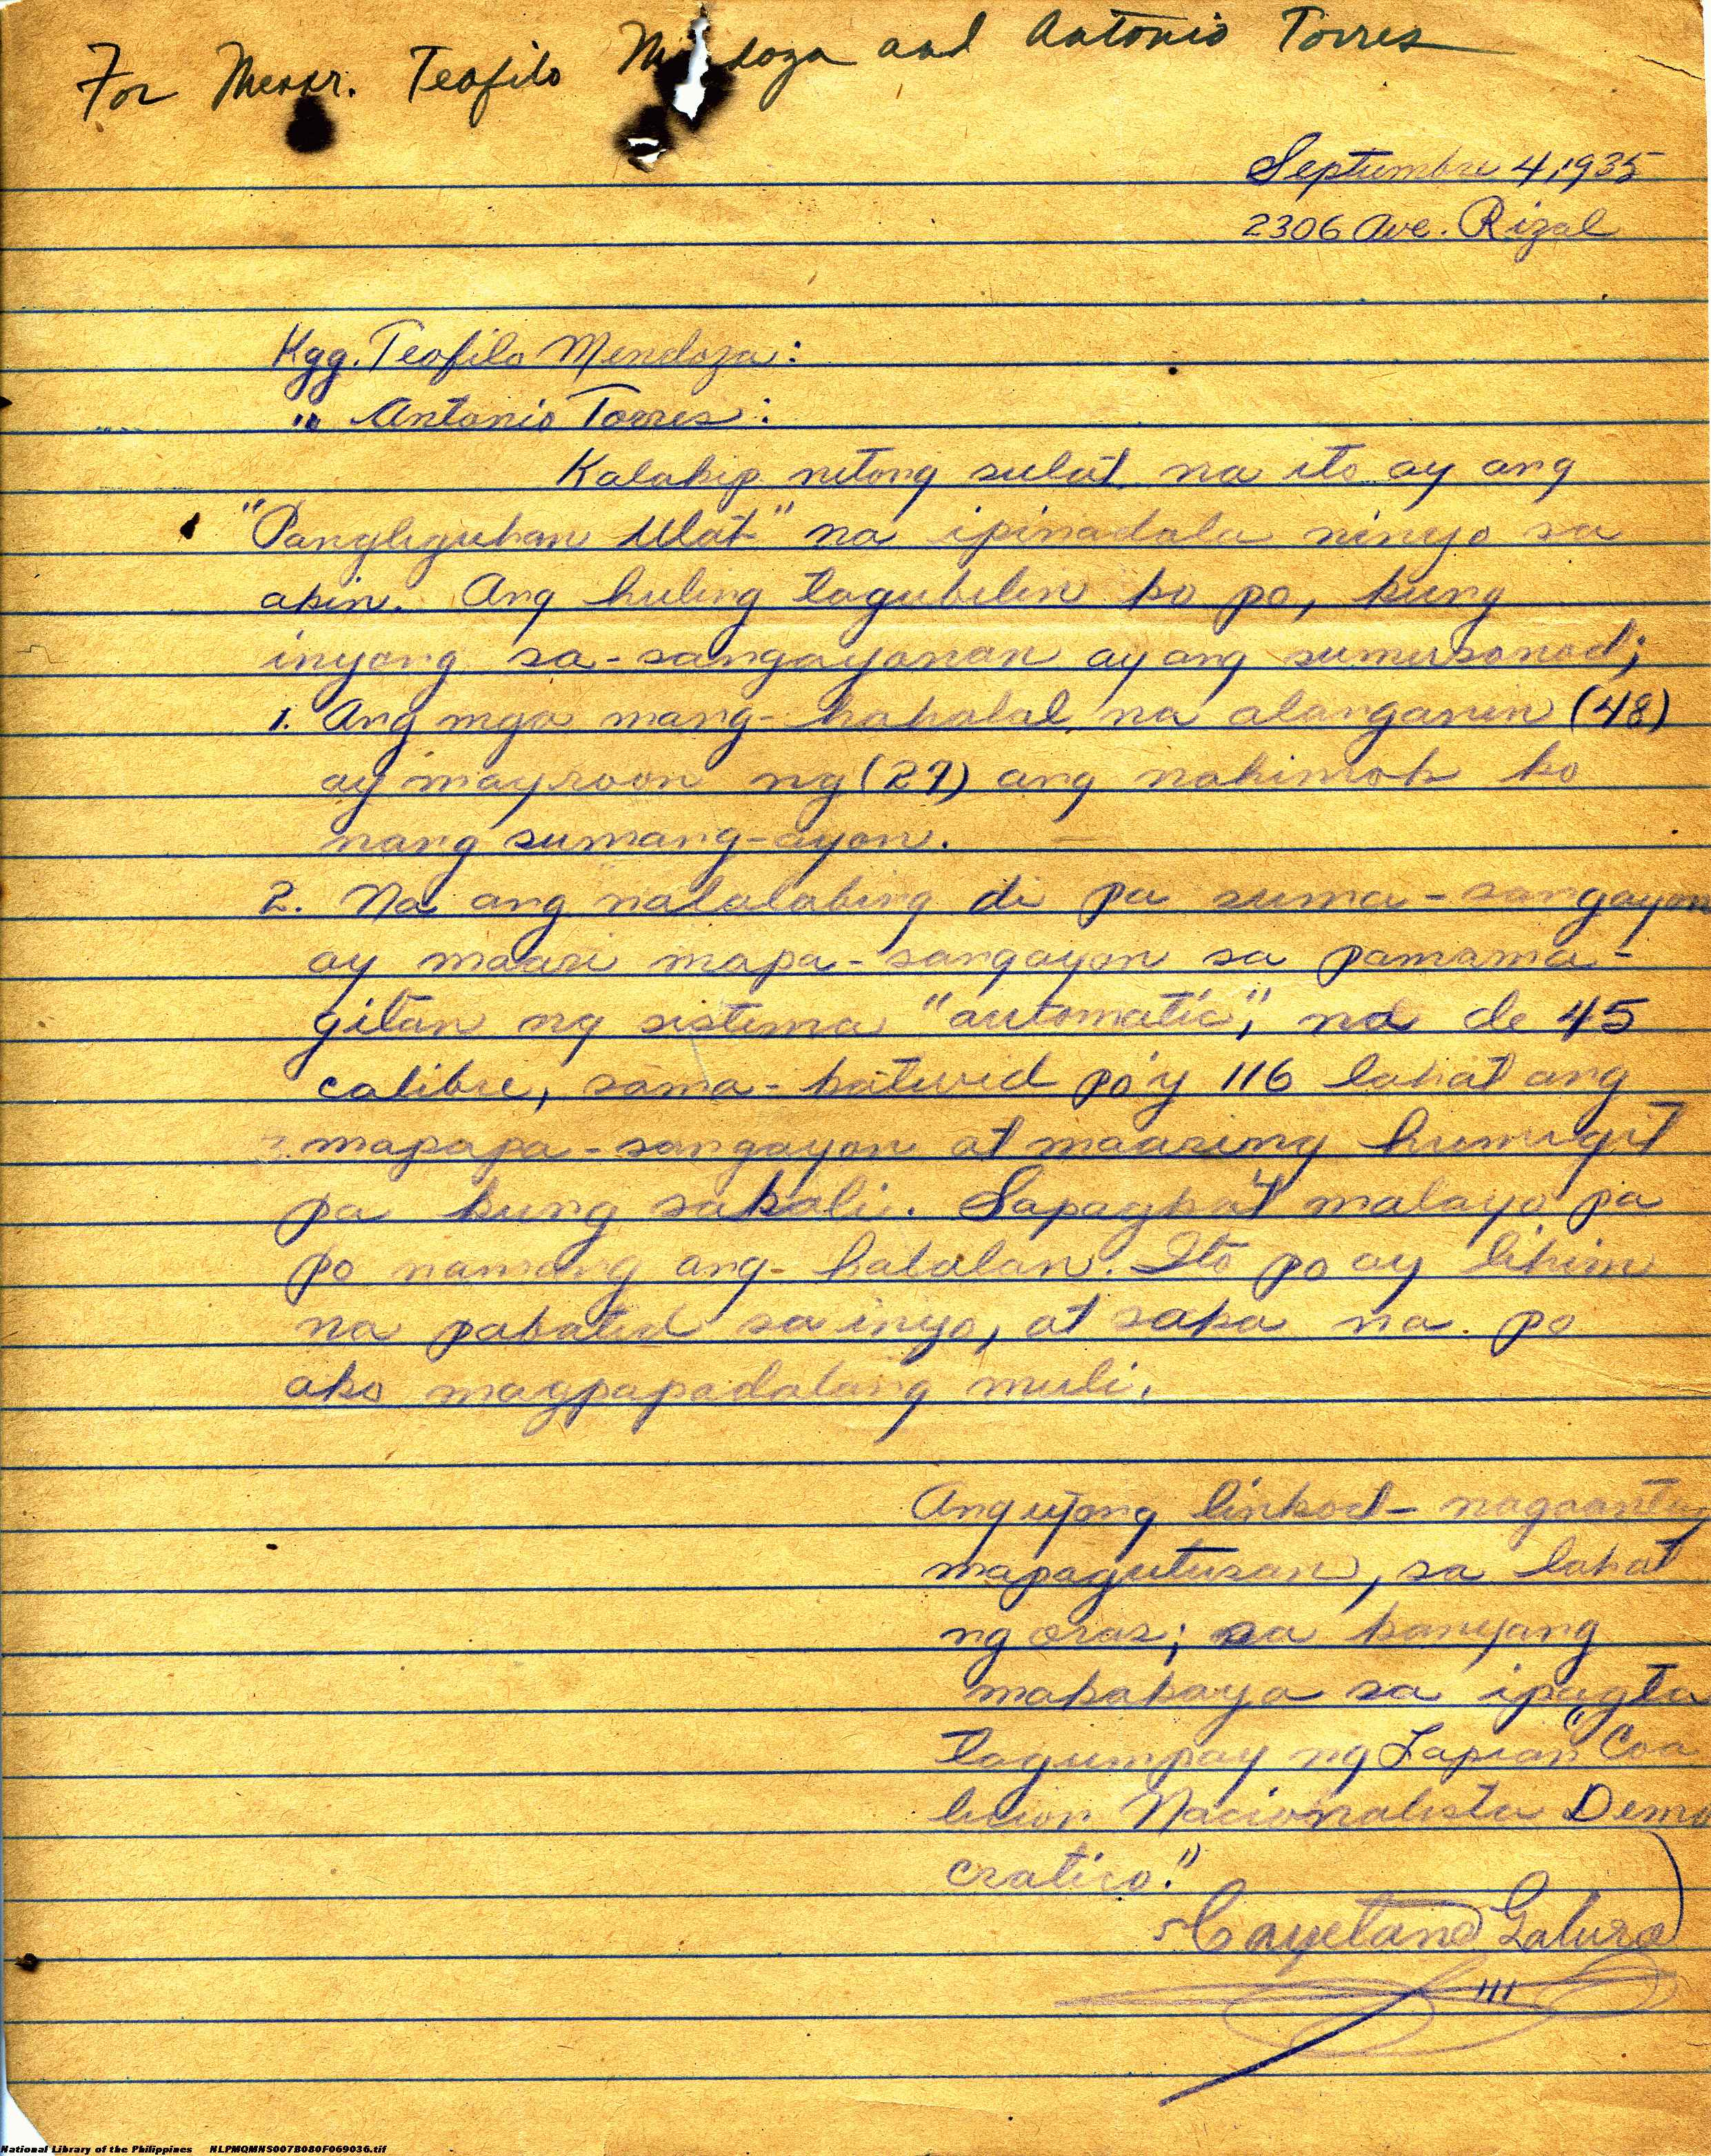 For Messr. Teofilo Mendoza and Antonio Torres
Septiembre 4, 1935
2306 Ave. Rizal
Kgg. Teofilo Mendoza:
" Antonio Torres:
Kalakip nitong sulat na ito ay ang
"Pangliguhan Ulat" na ipinadala ninyo sa
akin. Ang huling tagubilin ko po, kung
inyong sa-sangayonan ay ang sumusonod;
1. Ang mga mang-hahalal na alanganin (48)
ay mayroon ng (27) ang nahimok ko
nang sumang-ayon.
2. Na ang nalalabing di pa suma-sangayon
ay maari mapa-sangayon sa pamama-
gitan ng sistema "automatic", na de 45
calibre, sama-katuid po'y 116 lahat ang
mapapa-sangayon at maaring humigit
pa kung sakali. Sapagka't malayo pa
po namang ang- halalan. Ito po ay lihim
na pabatid sa inyo, at saka na po
ako magpapadalang muli.
Ang uyong linkod- nagaantay
mapagutusan, sa lahat
ng oras; sa kanyang
makakaya sa ipagta
tagumpay ng Lapian "Coa
licion Nacionalista Demo
cratico."
Cayetano Galura
National Library of the Philippines NLPMQMNS007B080F069036.tif